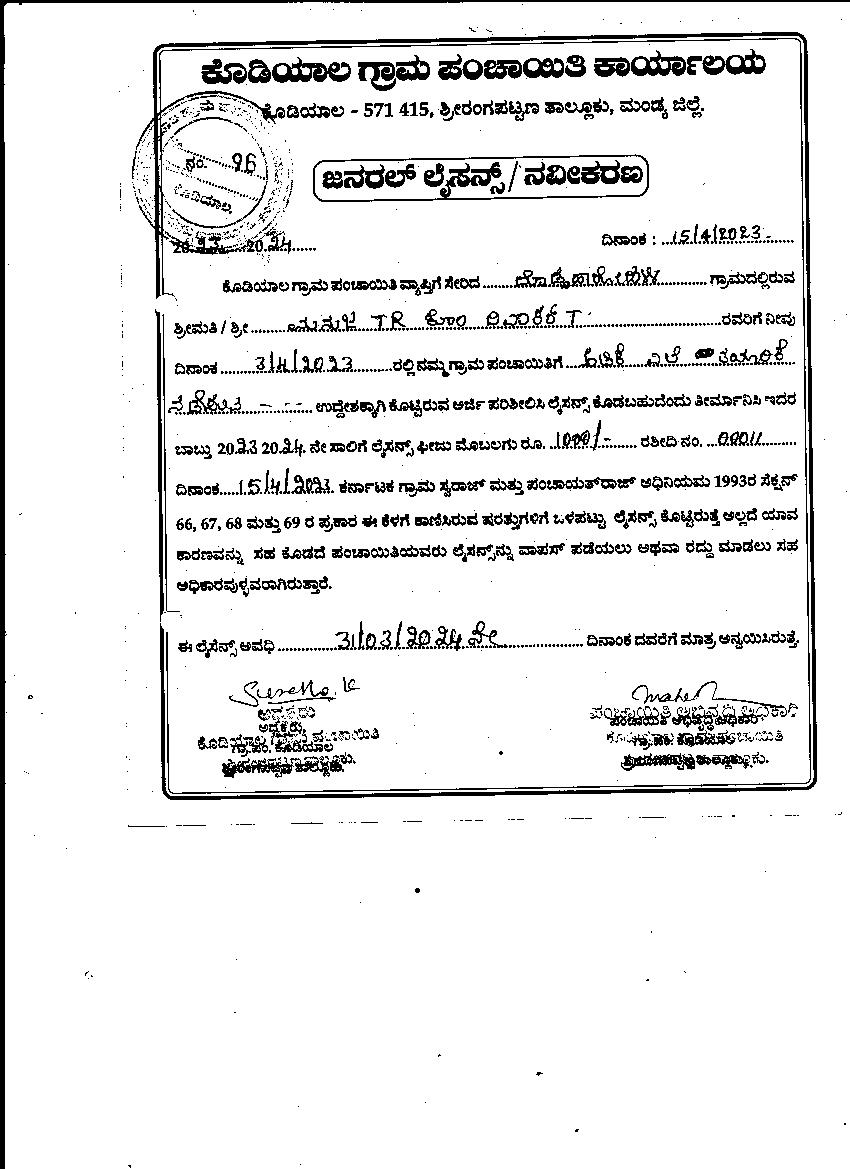 ಕೊಡಿಯಾಲ ಗ್ರಾಮ ಪಂಚಾಯಿತಿ ಕಾರ್ಯಾಲಯ
ಕೊಡಿಯಾಲ - 571 415, ಶ್ರೀರಂಗಪಟ್ಟಣ ತಾಲ್ಲೂಕು, ಮಂಡ್ಯ ಜಿಲ್ಲೆ.
ನಂ. 96
ಕೊಡಿಯಾಲ
ಜನರಲ್ ಲೈಸನ್ಸ್ / ನವೀಕರಣ
2023 2024 ದಿನಾಂಕ : 15/4/2023
ಕೊಡಿಯಾಲ ಗ್ರಾಮ ಪಂಚಾಯಿತಿ ವ್ಯಾಪ್ತಿಗೆ ಸೇರಿದ ಗ್ರಾಮದಲ್ಲಿರುವ
ಶ್ರೀಮತಿ / ಶ್ರೀ TR ಕೋಂ T ರವರಿಗೆ ನೀವು
ದಿನಾಂಕ 3/4/2023 ರಲ್ಲಿ ನಮ್ಮ ಗ್ರಾಮ ಪಂಚಾಯಿತಿಗೆ ತಯಾರಿಕೆ
ಉದ್ದೇಶಕ್ಕಾಗಿ ಕೊಟ್ಟಿರುವ ಅರ್ಜಿ ಪರಿಶೀಲಿಸಿ ಲೈಸನ್ಸ್ ಕೊಡಬಹುದೆಂದು ತೀರ್ಮಾನಿಸಿ ಇದರ
ಬಾಬ್ತು 2023 2024 ನೇ ಸಾಲಿಗೆ ಲೈಸನ್ಸ್ ಫೀಜು ಮೊಬಲಗು ರೂ. 1000/- ರಶೀದಿ ನಂ. 00011
ದಿನಾಂಕ 15/4/2023. ಕರ್ನಾಟಕ ಗ್ರಾಮ ಸ್ವರಾಜ್ ಮತ್ತು ಪಂಚಾಯತ್‌ರಾಜ್ ಅಧಿನಿಯಮ 1993ರ ಸೆಕ್ಷನ್
66, 67, 68 ಮತ್ತು 69 ರ ಪ್ರಕಾರ ಈ ಕೆಳಗೆ ಕಾಣಿಸಿರುವ ಷರತ್ತುಗಳಿಗೆ ಒಳಪಟ್ಟು ಲೈಸನ್ಸ್ ಕೊಟ್ಟಿರುತ್ತೆ ಅಲ್ಲದೆ ಯಾವ
ಕಾರಣವನ್ನು ಸಹ ಕೊಡದೆ ಪಂಚಾಯಿತಿಯವರು ಲೈಸನ್ಸ್‌ನ್ನು ವಾಪಸ್ ಪಡೆಯಲು ಅಥವಾ ರದ್ದು ಮಾಡಲು ಸಹ
ಅಧಿಕಾರವುಳ್ಳವರಾಗಿರುತ್ತಾರೆ.
ಈ ಲೈಸೆನ್ಸ್ ಅವಧಿ 31/03/2024 ನೇ ದಿನಾಂಕ ದವರೆಗೆ ಮಾತ್ರ ಅನ್ವಯಿಸಿರುತ್ತೆ.
ಅಧ್ಯಕ್ಷರು ಪಂಚಾಯಿತಿ ಅಭಿವೃದ್ಧಿ ಅಧಿಕಾರಿ
ಅಧ್ಯಕ್ಷರು,
ಗ್ರಾ.ಪಂ. ಕೊಡಿಯಾಲ ಗ್ರಾ.ಪಂ. ಕೊಡಿಯಾಲ
ಶ್ರೀರಂಗಪಟ್ಟಣ ತಾಲ್ಲೂಕು. ಶ್ರೀರಂಗಪಟ್ಟಣ ತಾಲ್ಲೂಕು.